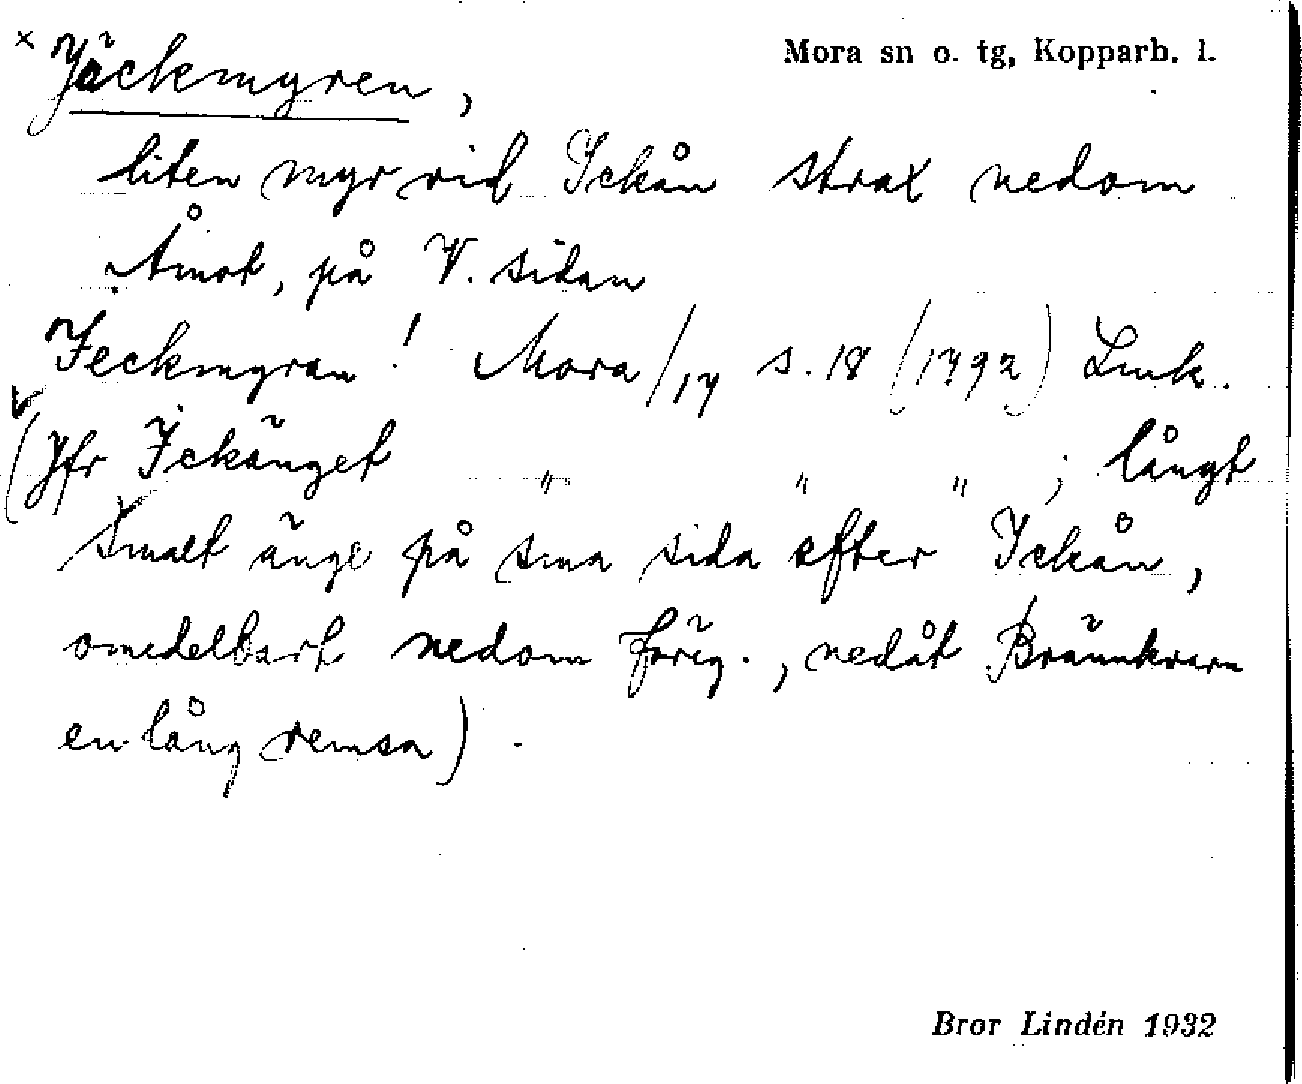 × Jäckmyren,
Mora sn o. tg, Kopparb. l.
liten myr vid Ickån strax nedom
Åmot, på V. sidan
Jeckmyran! Mora/17 s. 18 (1792) Lmk.
(Jfr Ickänget " " " ; långt
smalt änge på sma sida efter Ickån,
omedelbart nedom föreg., nedåt Brännkvarn
en lång remsa).
Bror Lindén 1932